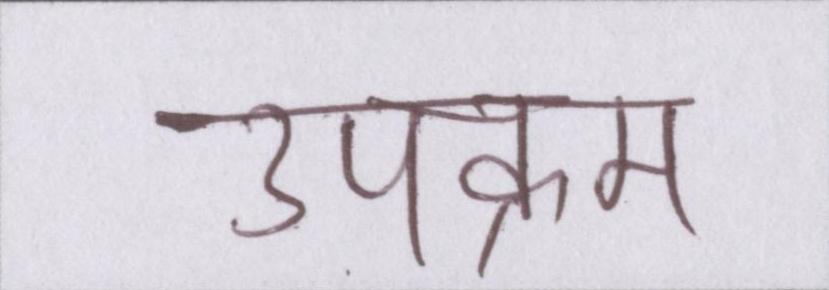 उपक्रम